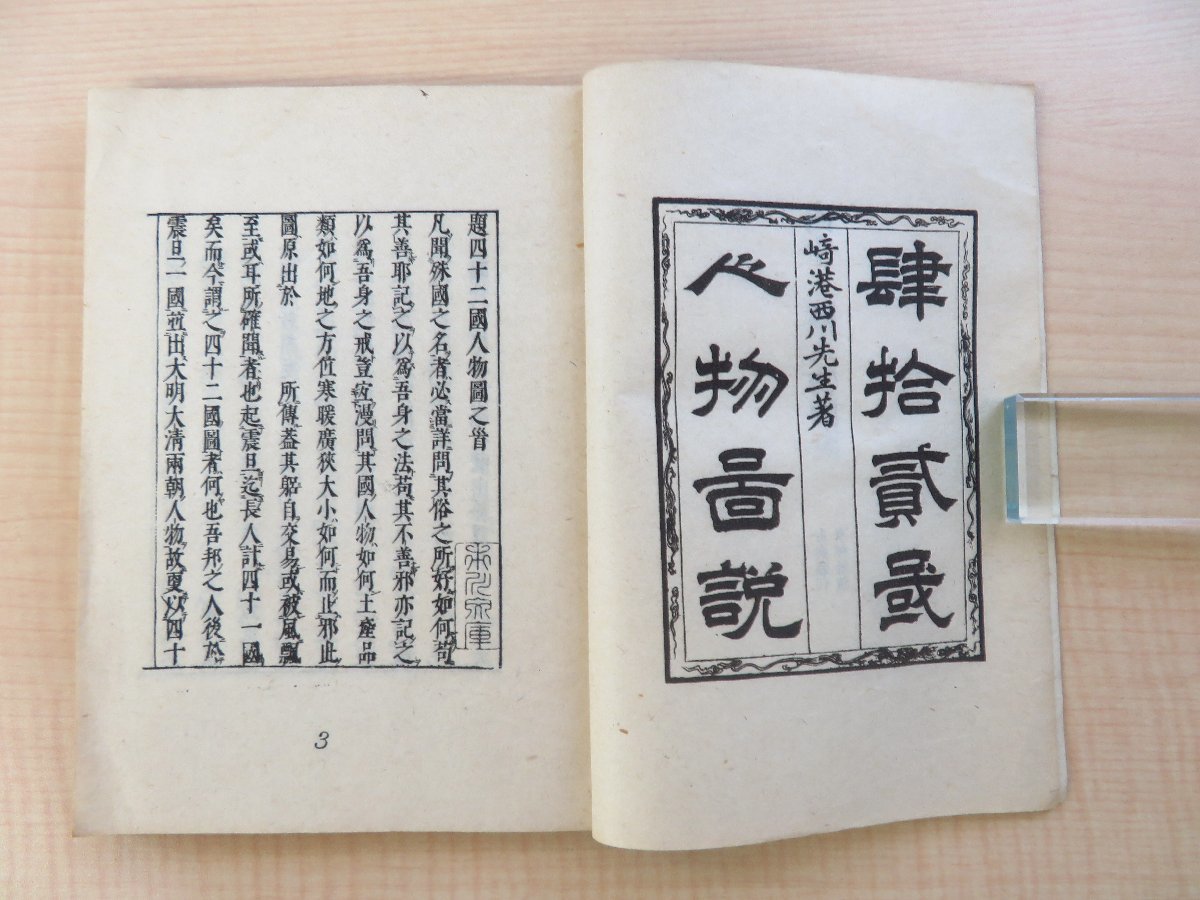 肆拾貳國
崎港西川先生著
人物圖説
題四十二國人物圖之首
凡聞殊國之名者必當詳問其俗之所好如何苟
其善耶記之以爲吾身之法苟其不善邪亦記之
以爲吾身之戒豈啻漫問其國人物如何土產品
類如何地之方位寒暖廣狹大小如何而止邪此
圖原出於 所傳蓋其躬自交易或被風飄
至或耳所確聞者也起震旦迄長人計四十一國
矣而今謂之四十二國圖者何也吾邦之人後於
震旦一國並出大明大清兩朝人物故更以四十
3